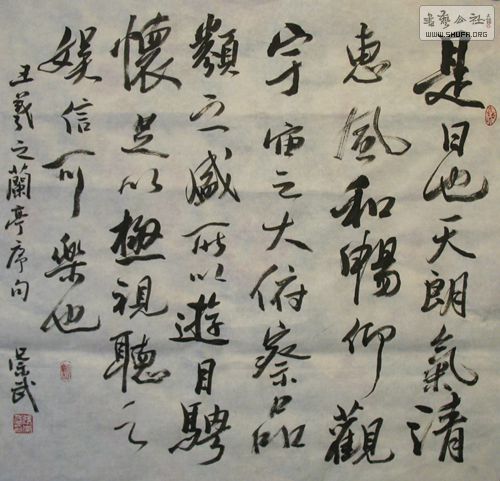 是日也天朗氣清
惠風和暢仰觀
宇宙之大俯察品
類之盛所以遊目騁
懷足以極視聽之
娱信可樂也
王羲之蘭亭序句
書藝公社
WWW.SHUFA.ORG